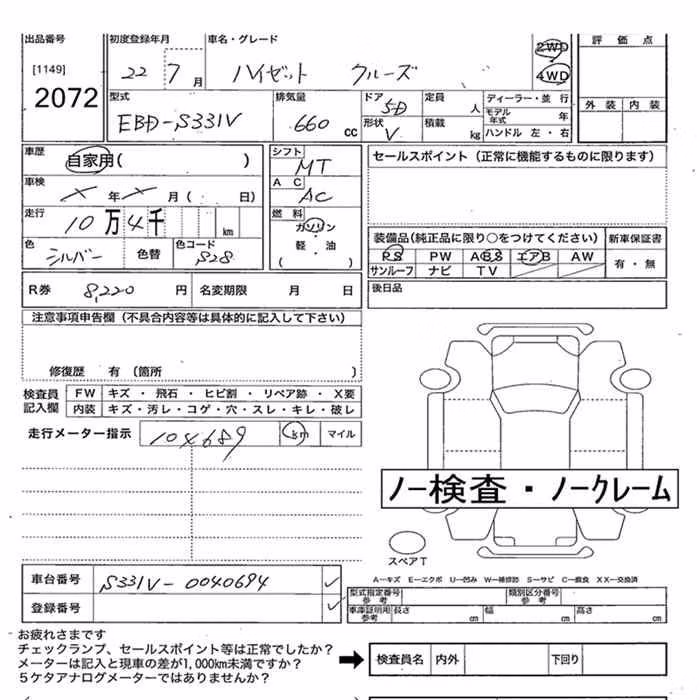 出品番号 初度登録年月 車名・グレード 評価点
[1149] 22 7月 ハイゼット クルーズ 2WD 4WD
2072 外装 内装
型式 排気量 ドア 5D 定員 人 ディーラー・並行
EBD-S331V 660 cc 形状 V 積載 kg モデル年式 年 ハンドル 左・右
車歴 自家用( ) シフト MT セールスポイント(正常に機能するものに限ります)
車検 X年X月( 日) AC AC
走行 10万4千 km 燃料 ガソリン 軽・油
装備品(純正品に限り○をつけてください) 新車保証書
色 シルバー 色替 色コード S28 PS PW ABS エアB AW 有・無
サンルーフ ナビ TV
R券 8,220 円 名変期限 月 日 後日品
注意事項申告欄(不具合内容等は具体的に記入して下さい)
修復歴 有(箇所 )
検査員記入欄 FW キズ・飛石・ヒビ割・リペア跡・X要
内装 キズ・汚レ・コゲ・穴・スレ・キレ・破レ
走行メーター指示 104689 km マイル
ノー検査・ノークレーム
スペアT
A―キズ E―エクボ U―凹み W―補修跡 S―サビ C―腐食 XX―交換済
車台番号 S331V-0040694 ✓
型式指定番号参考 類別区分番号参考
登録番号 ✓ 車庫証明用参考 長さ cm 幅 cm 高さ cm
お疲れさまです
チェックランプ、セールスポイント等は正常でしたか?
メーターは記入と現車の差が1,000km未満ですか? ➡ 検査員名 内外 下回り
5ケタアナログメーターではありませんか?